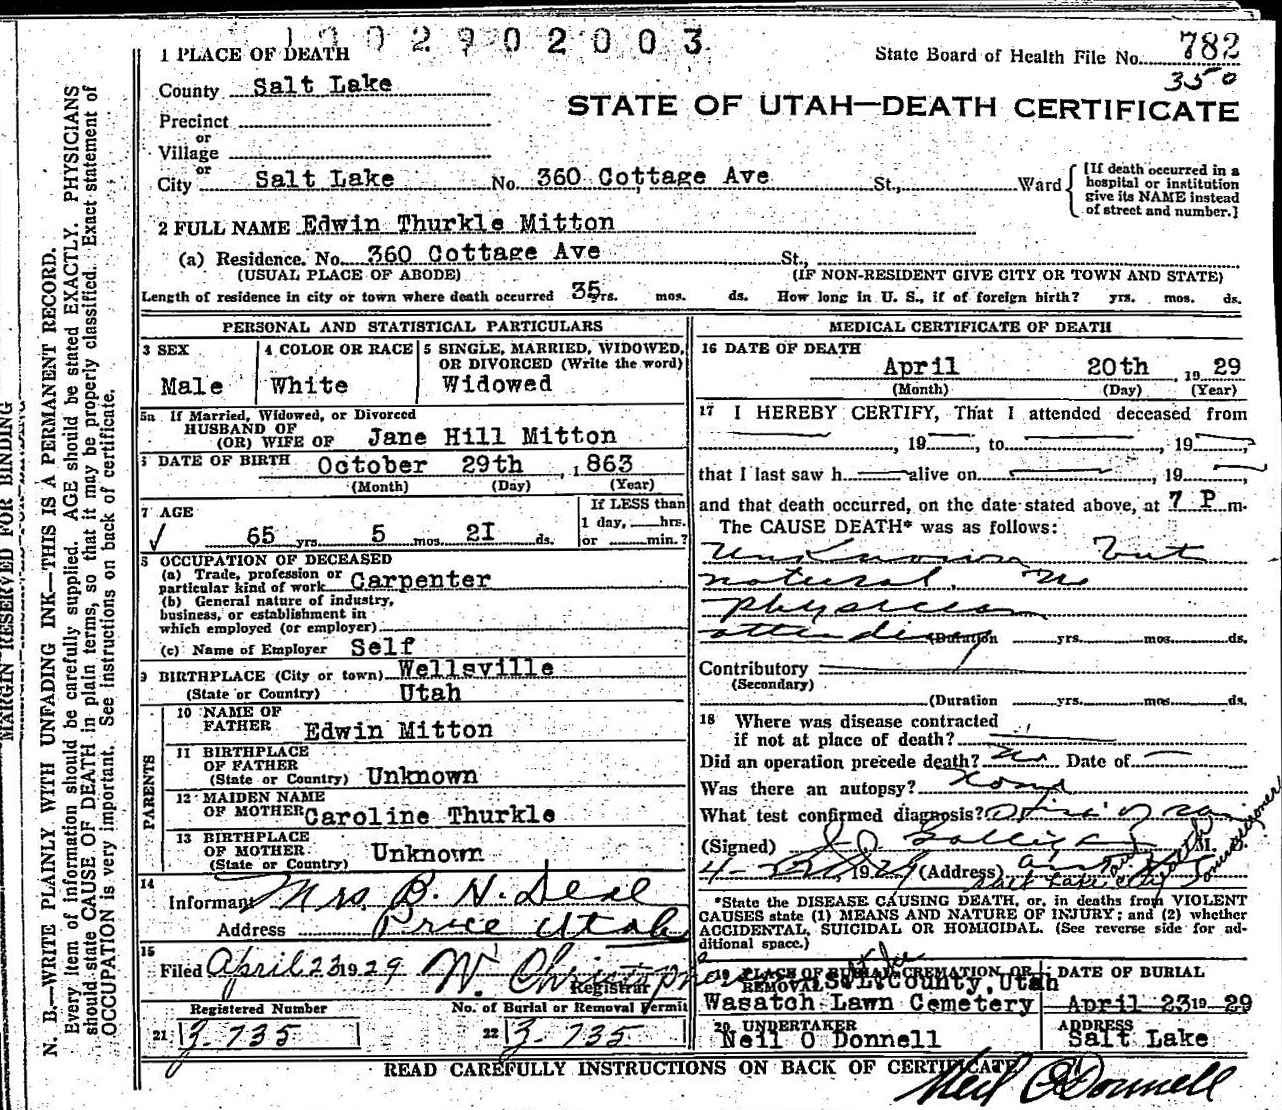 1 PLACE OF DEATH
029 02003
State Board of Health File No. 782
350
County Salt Lake
STATE OF UTAH—DEATH CERTIFICATE
Precinct
or
Village
or
City Salt Lake No. 360 Cottage Ave St., Ward
[If death occurred in a
hospital or institution
give its NAME instead
of street and number.]
2 FULL NAME Edwin Thurkle Mitton
(a) Residence. No. 360 Cottage Ave St.,
(USUAL PLACE OF ABODE) (IF NON-RESIDENT GIVE CITY OR TOWN AND STATE)
Length of residence in city or town where death occurred 35 yrs. mos. ds. How long in U. S., if of foreign birth? yrs. mos. ds.
PERSONAL AND STATISTICAL PARTICULARS
3 SEX
Male
4 COLOR OR RACE
White
5 SINGLE, MARRIED, WIDOWED,
OR DIVORCED (Write the word)
Widowed
5a If Married, Widowed, or Divorced
HUSBAND OF
(OR) WIFE OF Jane Hill Mitton
6 DATE OF BIRTH October 29th 1863
(Month) (Day) (Year)
7 AGE
65 yrs. 5 mos. 2I ds.
If LESS than
1 day, hrs.
or min.?
8 OCCUPATION OF DECEASED
(a) Trade, profession or
particular kind of work Carpenter
(b) General nature of industry,
business, or establishment in
which employed (or employer)
(c) Name of Employer Self
9 BIRTHPLACE (City or town) Wellsville
(State or Country) Utah
PARENTS
10 NAME OF
FATHER Edwin Mitton
11 BIRTHPLACE
OF FATHER
(State or Country) Unknown
12 MAIDEN NAME
OF MOTHER Caroline Thurkle
13 BIRTHPLACE
OF MOTHER
(State or Country) Unknown
14
Informant Mrs. B. H. Deal
Address Price Utah
15
Filed April 23 1929 W. Christopher
Registrar
Registered Number
21 3-735
No. of Burial or Removal Permit
22 3-735
MEDICAL CERTIFICATE OF DEATH
16 DATE OF DEATH
April 20th, 19 29
(Month) (Day) (Year)
17 I HEREBY CERTIFY, That I attended deceased from
, 19 , to , 19 ,
that I last saw h alive on , 19
and that death occurred, on the date stated above, at 7 P. m.
The CAUSE DEATH* was as follows:
Unknown but
natural. No
physician
attending
(Duration yrs. mos. ds.
Contributory
(Secondary)
(Duration yrs. mos. ds.
18 Where was disease contracted
if not at place of death?
Did an operation precede death? No Date of
Was there an autopsy?
What test confirmed diagnosis?
(Signed)
4- , 1929 (Address)
Salt Lake City
*State the DISEASE CAUSING DEATH, or, in deaths from VIOLENT
CAUSES state (1) MEANS AND NATURE OF INJURY; and (2) whether
ACCIDENTAL, SUICIDAL OR HOMICIDAL. (See reverse side for ad-
ditional space.)
19 PLACE OF BURIAL, CREMATION, OR
REMOVAL S.L. County, Utah
Wasatch Lawn Cemetery
DATE OF BURIAL
April 23 19 29
20 UNDERTAKER
Neil O Donnell
ADDRESS
Salt Lake
READ CAREFULLY INSTRUCTIONS ON BACK OF CERTIFICATE
Neil O'Donnell
MARGIN RESERVED FOR BINDING
N. B.—WRITE PLAINLY WITH UNFADING INK—THIS IS A PERMANENT RECORD.
Every item of information should be carefully supplied. AGE should be stated EXACTLY. PHYSICIANS
should state CAUSE OF DEATH in plain terms, so that it may be properly classified. Exact statement of
OCCUPATION is very important. See instructions on back of certificate.